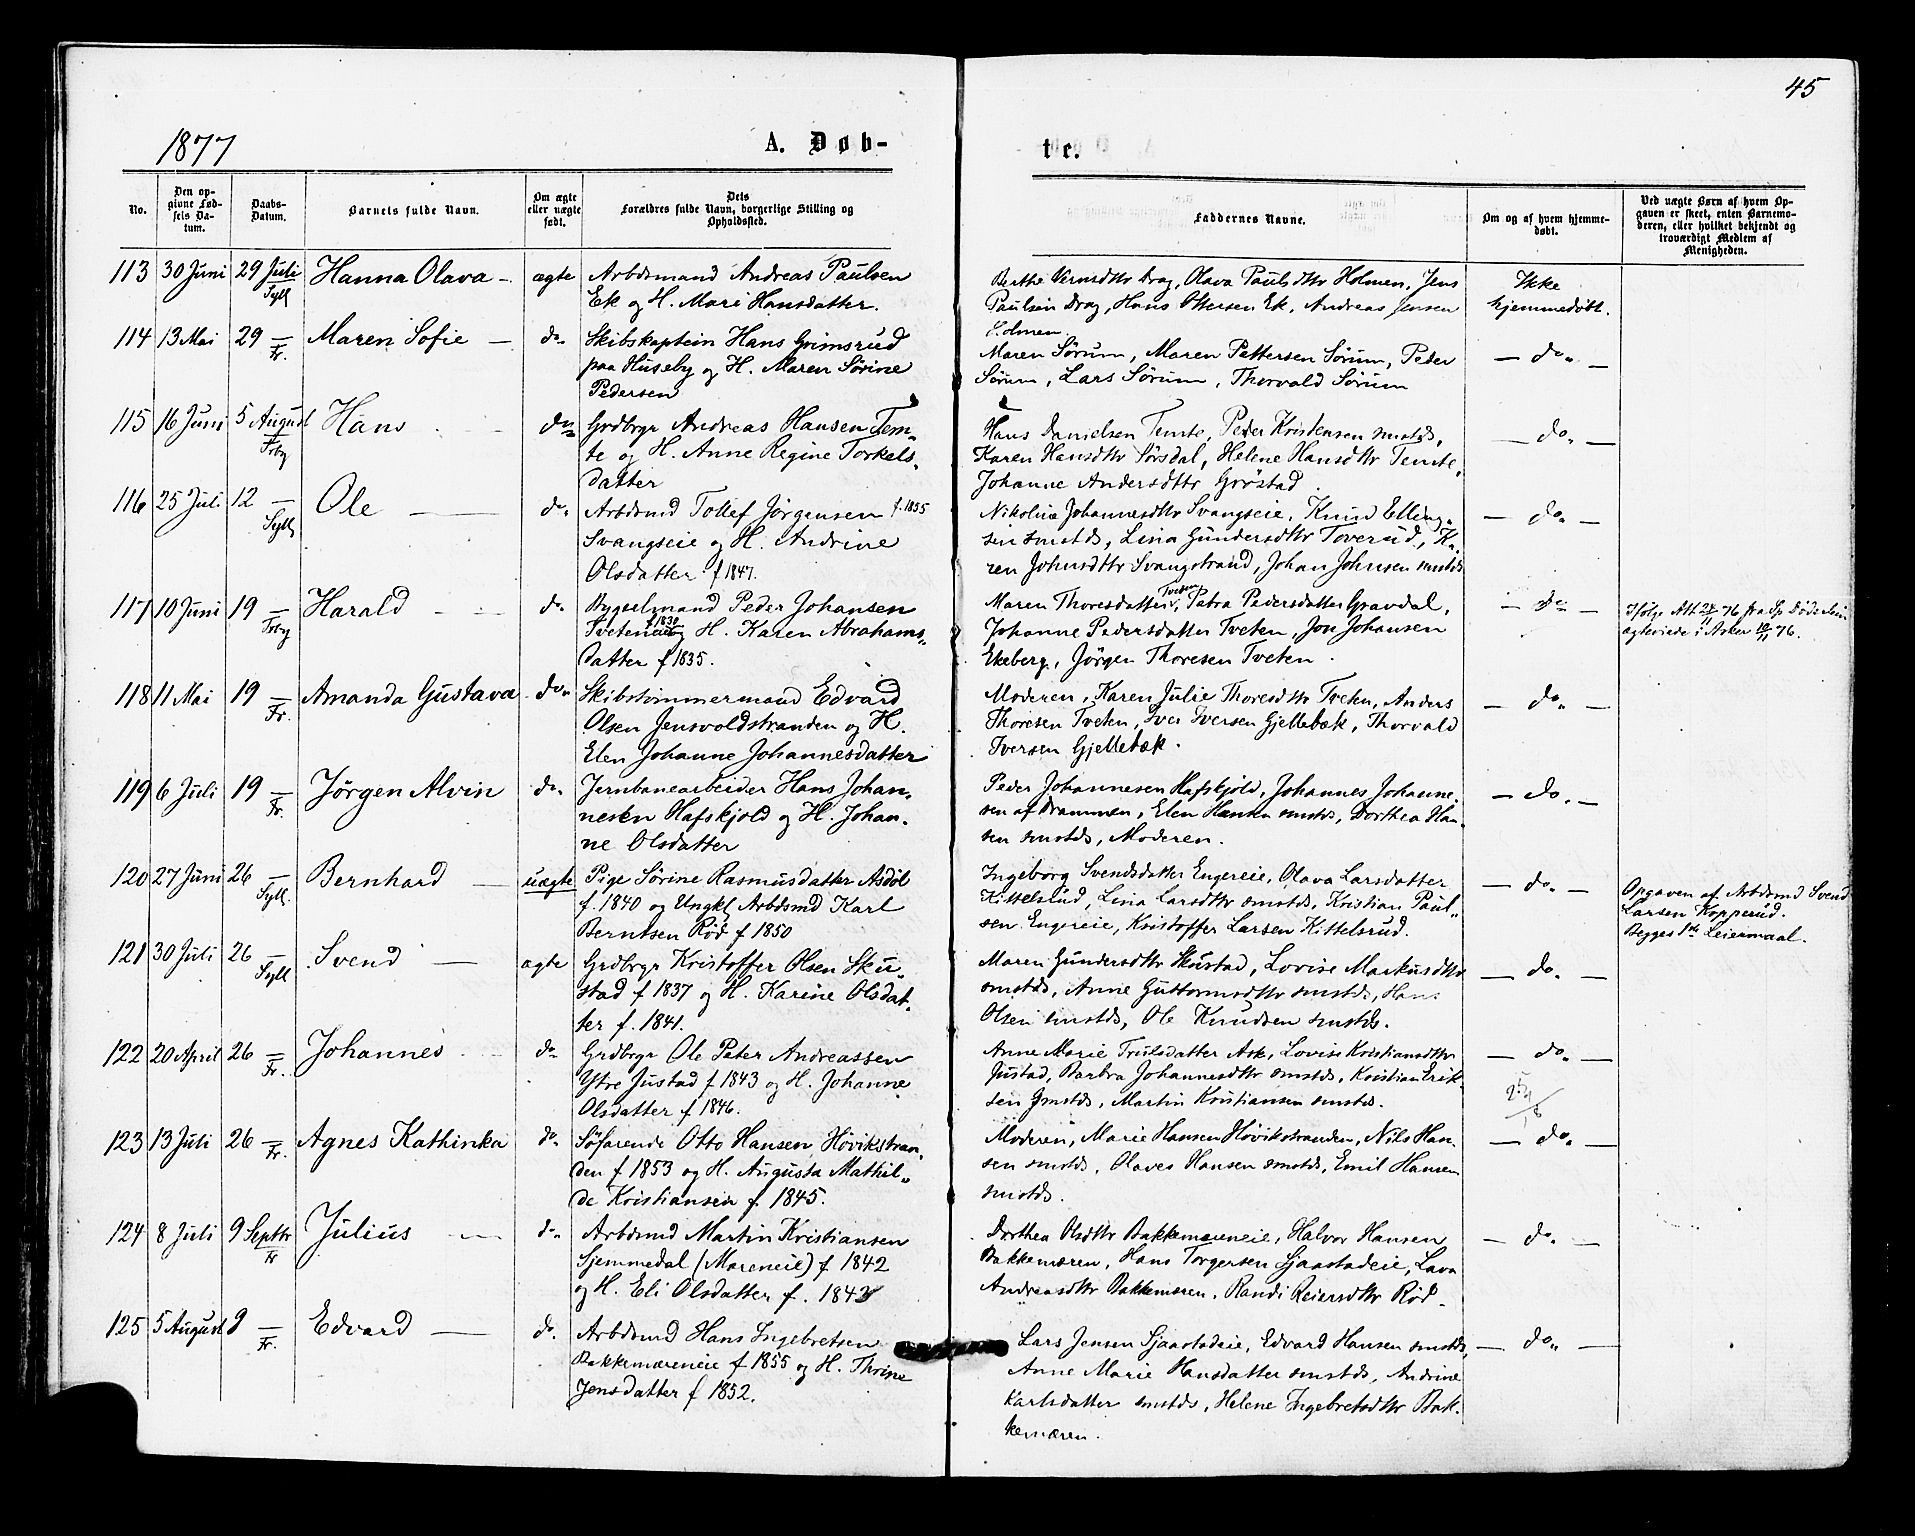 45
1877
A. Døb-
te.
No.
Den op-
givne Fød-
sels Da-
tum.
Daabs-
Datum.
Barnets fulde Navn.
Om ægte
eller uægte
født.
Dets
Forældres fulde Navn, borgerlige Stilling og
Opholdssted.
Faddernes Navne.
Om og af hvem hjemme-
døbt.
Ved uægte Børn af hvem Op-
gaven er skeet, enten Barnemo-
deren, eller hvilket bekjendt og
troværdigt Medlem af
Menigheden.
113 30 Juni 29 Juli Hanna Olava - ægte
Syll
Arbdsmand Andreas Paulsen
Ek og H. Mari Hansdatter.
Dragg, Olava Paulsdttr Holmen, Jens
Paulsen Drag, Hans Ottersen Ek, Andreas Jensen
Holmen.
Ikke
hjemmedøbt.
114 13 Mai 29 — Maren Sofie — do
Fr.
Skibskaptein Hans Grimsrud
paa Huseby og H. Maren Sørine
Pedersen
Maren Sørum, Maren Pettersen Sørum, Peder
Sørum, Lars Sørum, Thorvald Sørum
— do. —
115 16 Juni 5 August Hans do
Frby
Grdbrgr Andreas Hansen Tem-
te og H. Anne Regine Torkels-
datter
Hans Danielsen Temte, Peder Kristensen smstds,
Karen Hansdttr Sørsdal, Helene Hansdttr Temte,
Johanne Andersdttr Grøstad.
— do. —
116 25 Juli 12 — Ole — do.
Syll
Arbdsmd Tollef Jørgensen f. 1855
Svangseie og H. Andrine
Olsdatter f 1847.
Nikoline Johannesdttr Svangseie, Knud Elling-
sen smstds, Lina Gundersdttr Toverud, Ka-
ren Johnsdttr Svangstrand, Johan Johnsen smstds
— do. —
117 10 Juni 19 — Harald — do
Frby
Bygselmand Peder Johansen
f 1830
og H. Karen Abrahams-
datter f 1835.
Tveten
Maren Thoresdatter, Petra Pedersdatter Gravdal,
Johanne Pedersdatter Tveten, Jon Johansen
Ekeberg, Jörgen Thoresen Tveten.
— do —
76 fra
ægteviede i Asker 10/11 76.
118 11 Mai 19 — Amanda Gustava do.
Fr.
Skibstømmermand Edvard
Olsen Jensvoldstranden og H.
Elen Johanne Johannesdatter
Moderen, Karen Julie Thoresdttr Tveten, Anders
Thoresen Tveten, Iver Iversen Gjellebæk, Thorvald
Iversen Gjellebæk.
— do. —
119 6 Juli 19 — Jørgen Alvin do.
Fr.
Jernbanearbeider Hans Johan-
nesen Hafskjold og H. Johan-
ne Olsdatter
Peder Johannesen Hafskjold, Johannes Johanne-
sen af Drammen, Elen Hansen smstds, Dorthea Han-
sen smstds, Moderen.
— do. —
120 27 Juni 26 — Bernhard — uægte
Syll.
Pige Sørine Rasmusdatter Asdøl
f. 1840 og Ungkl Arbdsmd Karl
Berntsen Rød f 1850
Ingeborg Svendsdatter Engereie, Olava Larsdatter
Kittelsrud, Lina Larsdttr smstds, Kristian Paul-
sen Engereie, Kristoffer Larsen Kittelsrud.
— do. —
Opgaven af Arbdsmd Svend
Larsen Kopperud.
Begges 1ste Leiermaal.
121 30 Juli 26 — Svend — ægte
Syll
Grdbrgr Kristoffer Olsen Sku-
stad f 1837 og H. Karine Olsdat-
ter f. 1841.
Maren Gundersdttr Skustad, Lovise Markusdttr
smstds, Anne Guttormsdttr smstds, Hans
Olsen smstds, Ole Knudsen smstds.
— do. —
122 20 April 26 — Johannes do
Fr.
Grdbrgr Ole Peter Andreassen
Ytre Justad f 1843 og H. Johanne
Olsdatter f 1846.
Anne Marie Trulsdatter Ask, Lovise Kristiansdttr
Justad, Barbra Johannesdttr smstds, Kristian Erik-
sen smstds, Martin Kristiansen smstds.
— do. —
123 13 Juli 26 — Agnes Kathinka do.
Fr.
Søfarende Otto Hansen Høvikstran-
den f 1853 og H. Augusta Mathil-
de Kristiansen f. 1845.
Moderen, Marie Hansen Høvikstranden, Nils Han-
sen smstds, Olaves Hansen smstds, Emil Hansen
smstds.
— do. —
124 8 Juli 9 Septbr Julius — do
Fr
Arbdsmd Martin Kristiansen
Sjemmedal (Mareneie) f 1842
og H. Eli Olsdatter f. 1843
Dorthea Olsdttr Bakkemæreneie, Halvor Hansen
Bakkemæren, Hans Torgersen Sjaastadeie, Lava
Andreasdttr Bakkemæren, Randi Reiersdttr Rød.
— do. —
125 5 August 9 — Edvard — do.
Fr.
Arbdsmd Hans Ingebretsen
Bakkemæreneie f 1855 og H. Thrine
Jensdatter f 1852.
Lars Jensen Sjaastadeie, Edvard Hansen smstds,
Anne Marie Hansdatter smstds, Andrine
Karlsdatter smstds, Helene Ingebretsdttr Bak-
kemæren.
— do. —